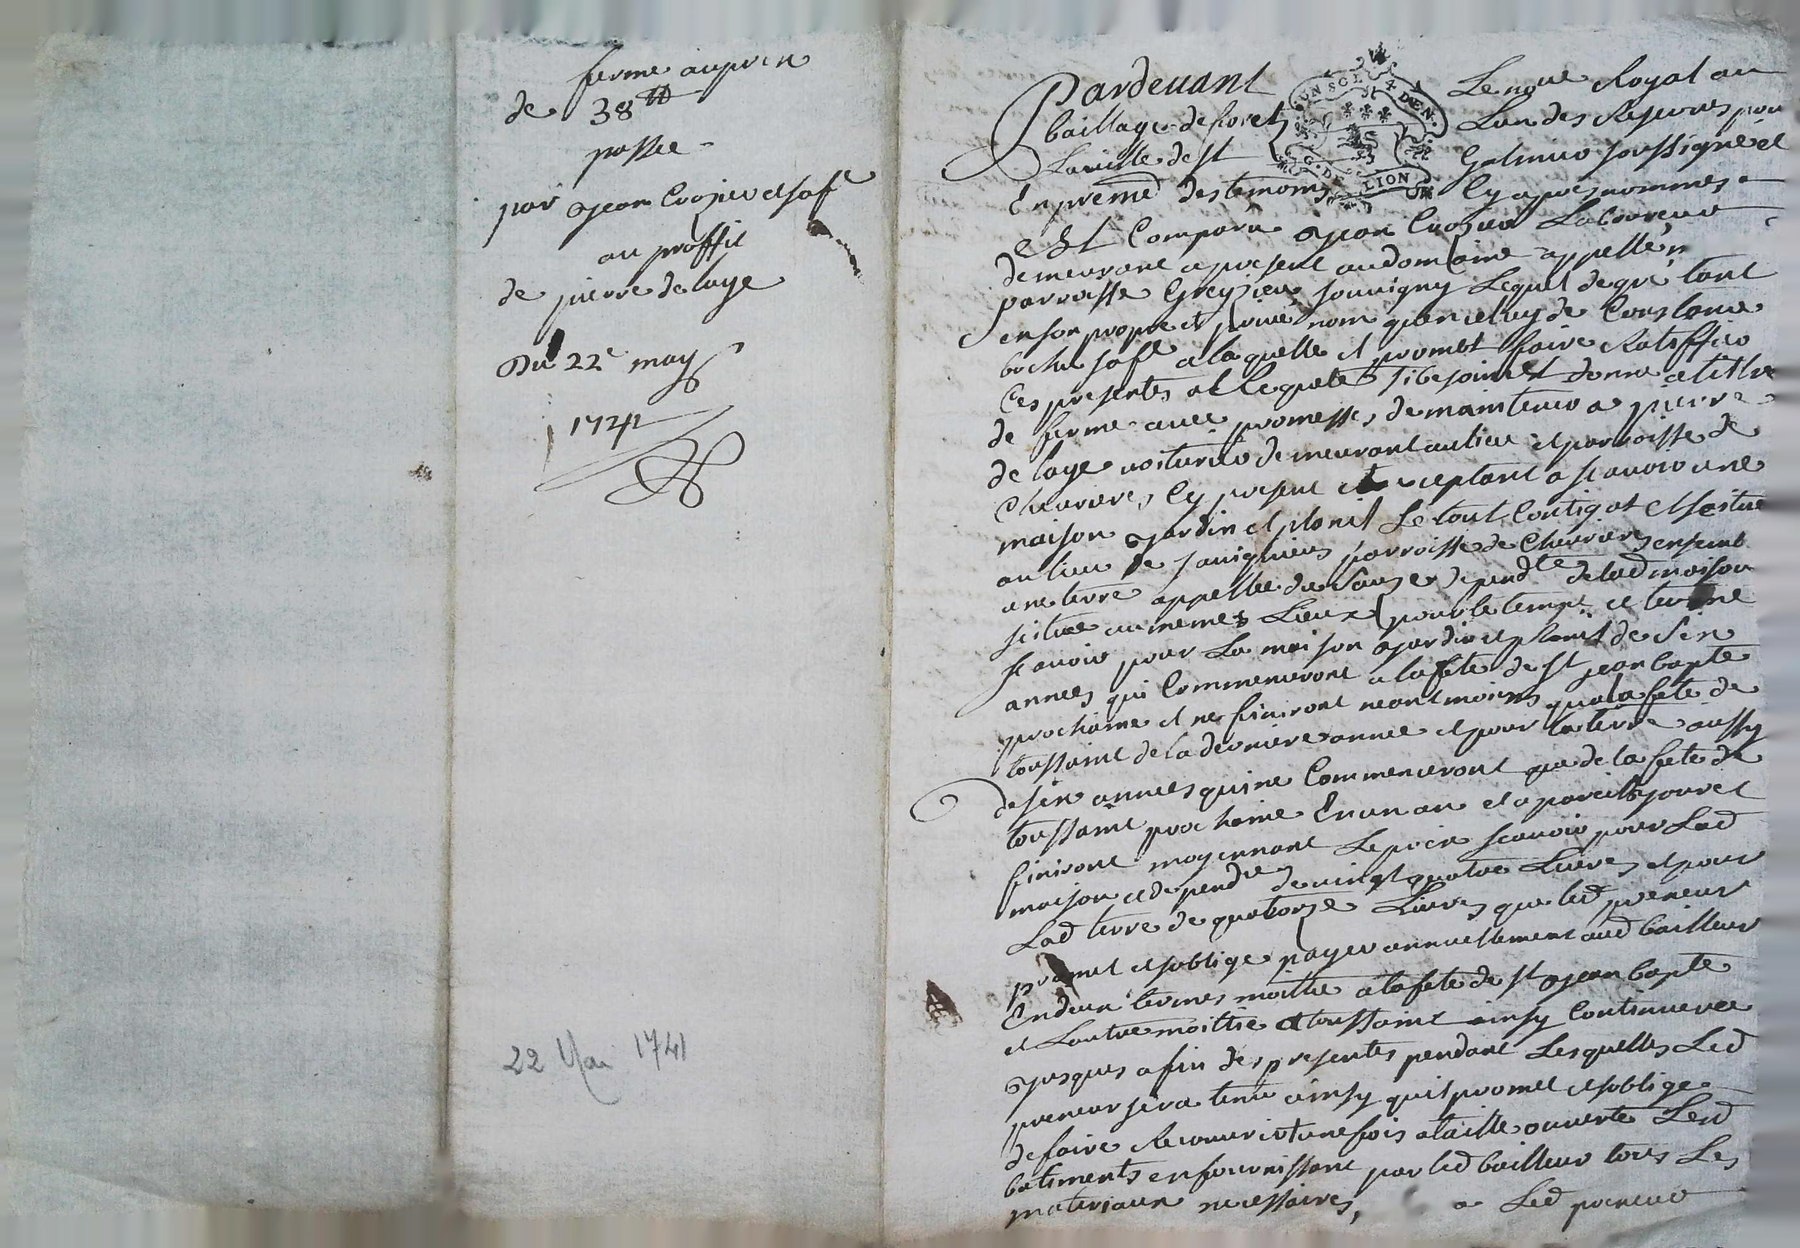 ferme auprix
de 38 tt
passee
par Jean Crozier et sa fe
au proffit
de pierre delaye
Du 22e may
1741
22 Mai 1741
Pardevant Le no.re Royal au
bailliage de forest Lun des Reserves pour
Laville de st Galmier soussigné et
En presence des temoins Cy apres nommes
UN SOL 4 DEN.
G. DE LION
Est Comparu Jean Crozier Laboureur
demeurant a present au domaine appellé
parroisse Grezieu souvigny Lequel de gré tant
en son propre et privé nom quen celuy de Constance
sa fe a laquelle il promet faire Ratiffier
Ces presentes at Requete si besoin est donne a titre
de ferme avec promesse de maintenir a pierre
delaye voiturier demeurant au lieu et parroisse de
Chevrieres Cy present et acceptant a scavoir une
maison Jardin et plant Le tout Contigat et scitué
au lieu de parroisse de Chevrieres ensemble
une terre appellée du dependte de lad maison
scituée au memes Lieux pour le temps et terme
scavoir pour La maison Jardin et plant de Six
annees qui Commenceront a la fete de st jean bapte
prochaine et ne finiront neantmoins qua la fete de
toussaint de la derniere année et pour la terre aussy
de six annees qui ne Commenceront que de la fete de
toussaint prochaine En un an et a pareils jour et
finiront moyennant Le prix scavoir pour Lad
maison et dependce de vingt quatre Livres et pour
Lad terre de quatorze Livres que led preneur
promet et soblige payer annuellement aud bailleur
En deux termes moitié a la fete de st Jean bapte
et Lautre moitie a toussaint ainsy Continuer
Jusques a fin des presentes pendant Lesquelles Led
preneur sera tenu ainsy quil promet et soblige
de faire Recouvrir une fois a taille ouverte Lesd
batiments en fournissant par led bailleur tous Les
materiaux necessaires, a Led preneur